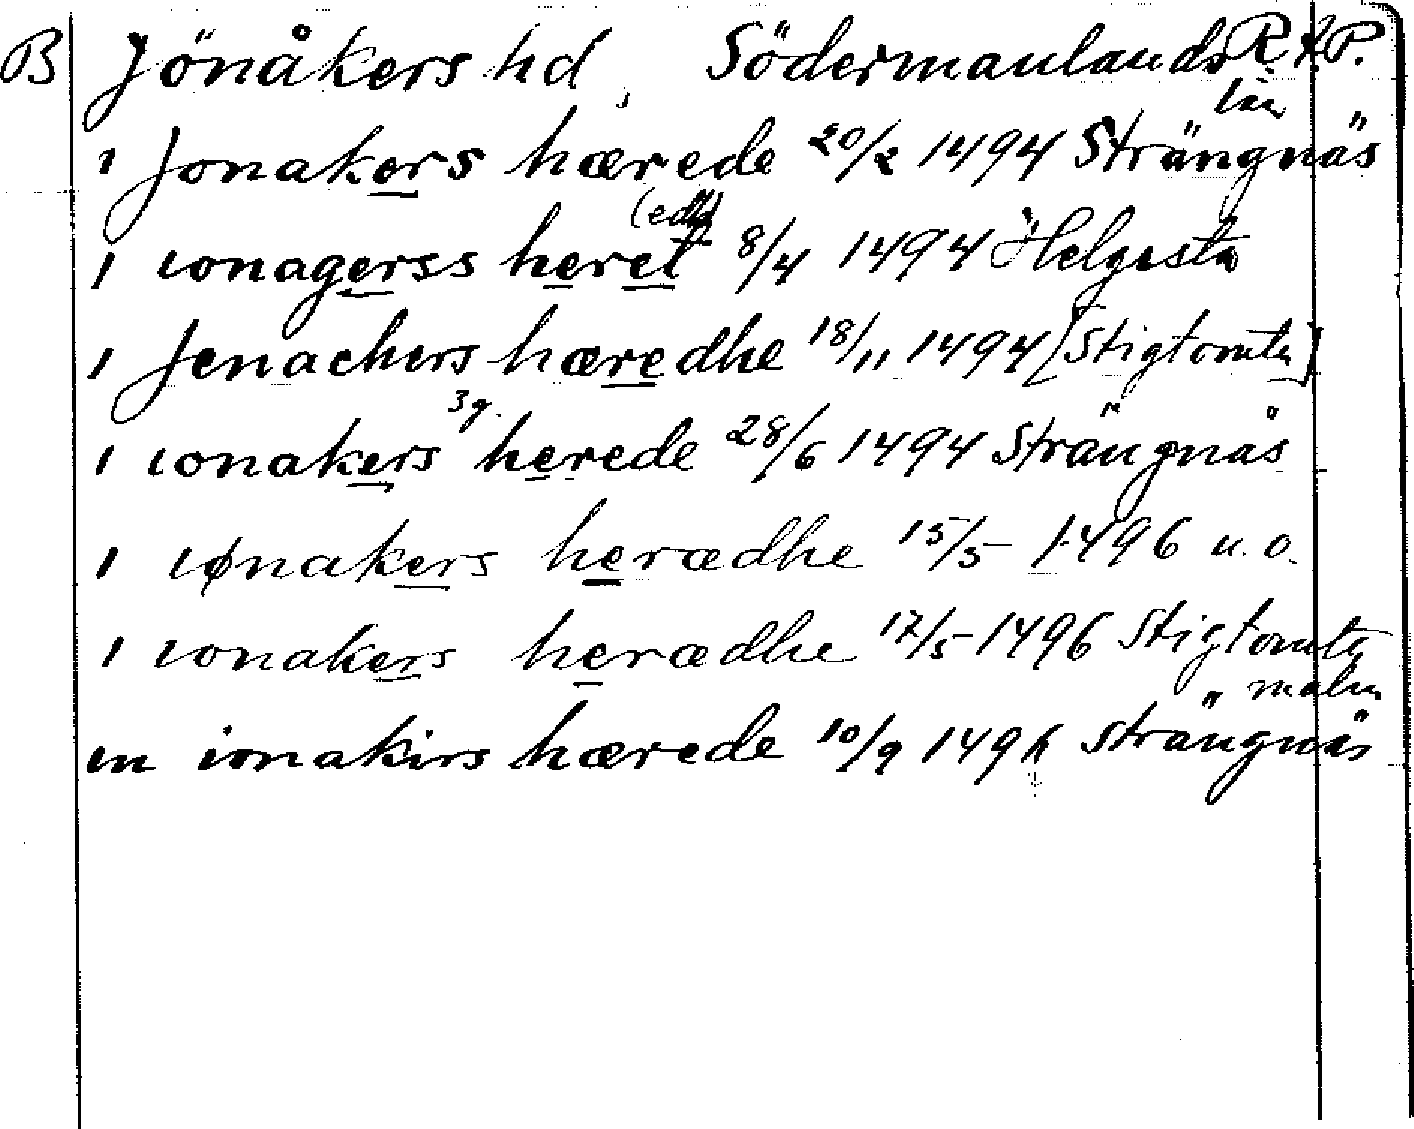 B Jönåkers hd, Södermanlands län R A. P.
ı Jonakers hærede 20/2 1494 Strängnäs
ı ıonagerss heret (edh) 8/4 1494 Ö Helgesta
ı Jenachers hæredhe 18/11 1494 [Stigtomta]
ı ıonakers 3g. herede 28/6 1494 Strängnäs
ı ıønakers herædhe 15/5 1496 u. o.
ı ıonakers herædhe 17/5 1496 Stigtomta malm
ın ionakirs hærede 10/9 1496 Strängnäs